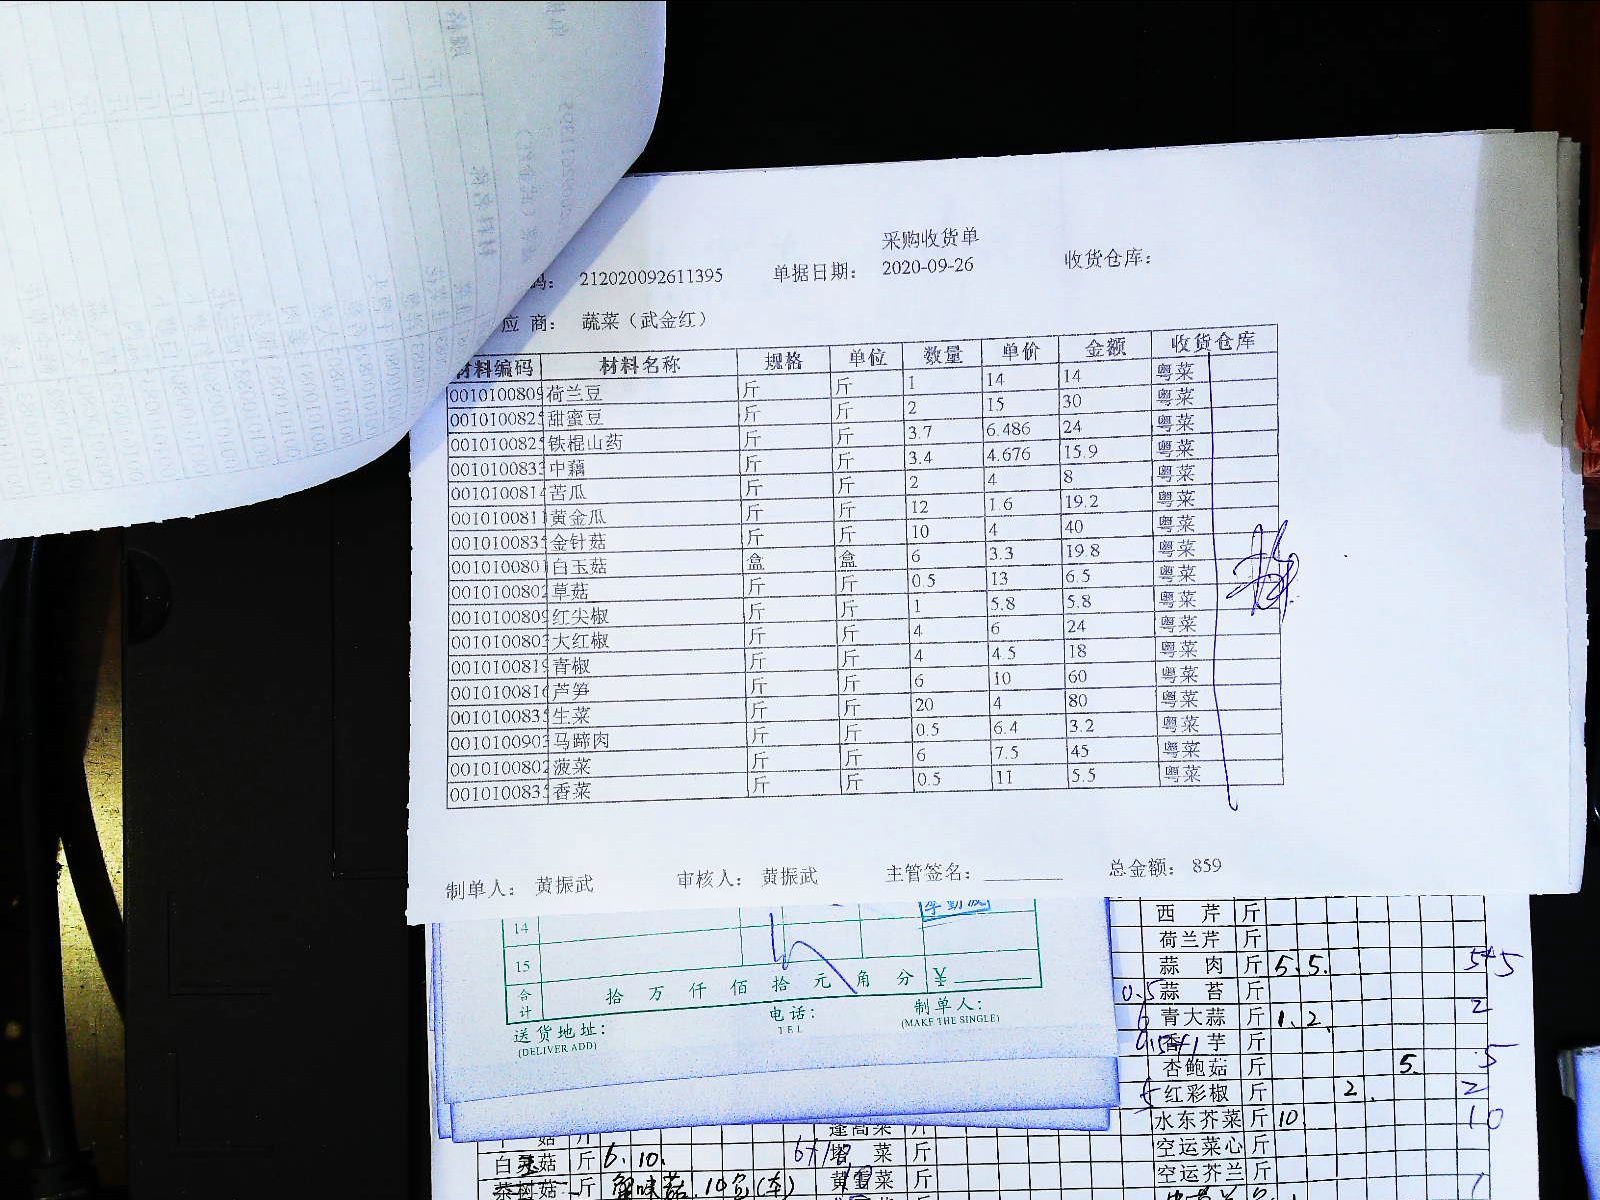 采购收货单
码： 212020092611395 单据日期： 2020-09-26 收货仓库：
应 商： 蔬菜（武金红）
材料编码 材料名称 规格 单位 数量 单价 金额 收货仓库
0010100809 荷兰豆 斤 斤 1 14 14 粤菜
001010082 甜蜜豆 斤 斤 2 15 30 粤菜
001010082 铁棍山药 斤 斤 3.7 6.486 24 粤菜
001010083 中藕 斤 斤 3.4 4.676 15.9 粤菜
001010081 苦瓜 斤 斤 2 4 8 粤菜
001010081 黄金瓜 斤 斤 12 1.6 19.2 粤菜
001010083 金针菇 斤 斤 10 4 40 粤菜
001010080 白玉菇 盒 盒 6 3.3 19.8 粤菜
001010080 草菇 斤 斤 0.5 13 6.5 粤菜
0010100809 红尖椒 斤 斤 1 5.8 5.8 粤菜
001010080 大红椒 斤 斤 4 6 24 粤菜
001010081 青椒 斤 斤 4 4.5 18 粤菜
001010081 芦笋 斤 斤 6 10 60 粤菜
001010083 生菜 斤 斤 20 4 80 粤菜
001010090 马蹄肉 斤 斤 0.5 6.4 3.2 粤菜
001010080 菠菜 斤 斤 6 7.5 45 粤菜
001010083 香菜 斤 斤 0.5 11 5.5 粤菜
制单人： 黄振武 审核人： 黄振武 主管签名： 总金额： 859
14
15
合计 拾 万 仟 佰 拾 元 角 分 ¥
送货地址： 电话： 制单人：
(DELIVER ADD) TEL (MAKE THE SINGLE)
西 芹 斤
荷兰芹 斤
蒜 肉 斤 5. 5. 5+5
0.5 蒜 苔 斤
6 青大蒜 斤 1. 2. 2
香 芋 斤
杏鲍菇 斤 5. 5
红彩椒 斤 2. 2
水东芥菜 斤 10. 10
空运菜心 斤
空运芥兰 斤
菇 斤 蓬蒿菜 斤
白灵菇 斤 6. 10. 塔 菜 斤
茶树菇 斤 蟹味菇 10包(车) 黄雪菜 斤